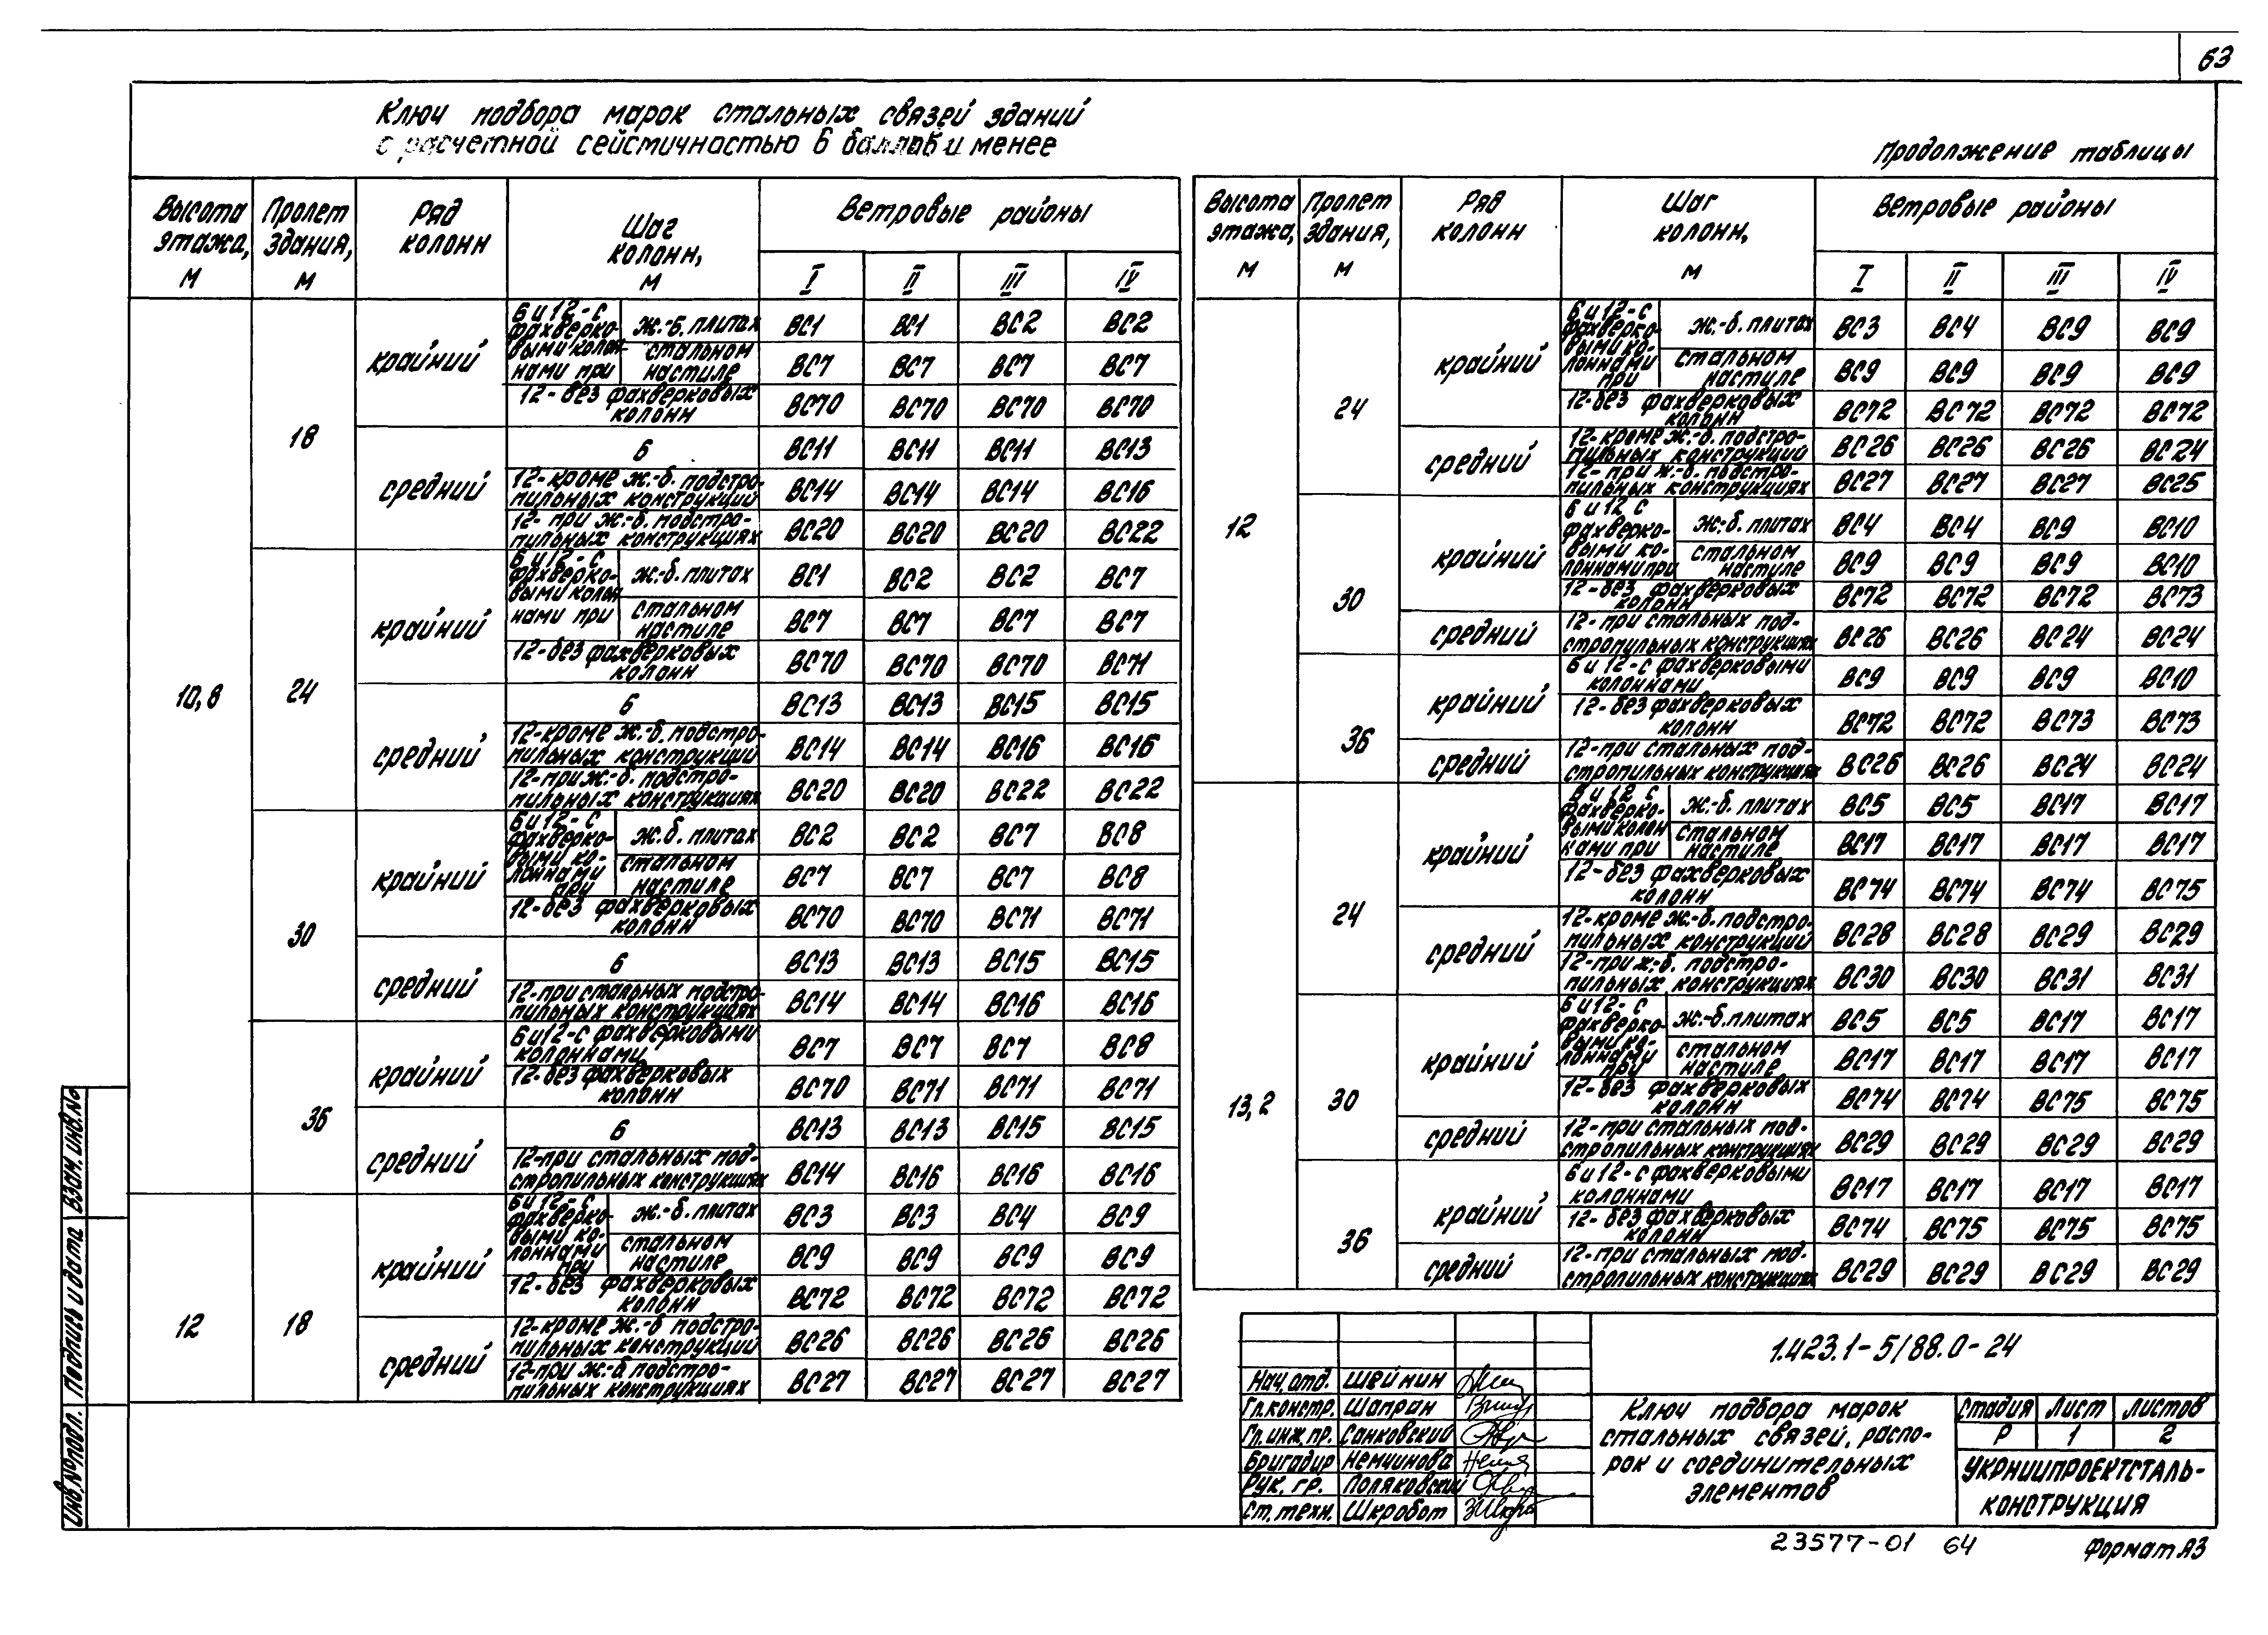 63
Ключ подбора марок стальных связей зданий
с расчетной сейсмичностью 6 баллов и менее
Продолжение таблицы
Высота этажа, м Пролет здания, м Ряд колонн Шаг колонн, м Ветровые районы
I II III IV
10,8
18
крайний
6 и 12-с фахверковыми колоннами при ж.-б. плитах ВС1 ВС1 ВС2 ВС2
стальном настиле ВС7 ВС7 ВС7 ВС7
12-без фахверковых колонн ВС70 ВС70 ВС70 ВС70
средний
6 ВС11 ВС11 ВС11 ВС13
12-кроме ж.-б. подстропильных конструкций ВС14 ВС14 ВС14 ВС16
12-при ж.-б. подстропильных конструкциях ВС20 ВС20 ВС20 ВС22
24
крайний
6 и 12-с фахверковыми колоннами при ж.-б. плитах ВС1 ВС2 ВС2 ВС7
стальном настиле ВС7 ВС7 ВС7 ВС7
12-без фахверковых колонн ВС70 ВС70 ВС70 ВС71
средний
6 ВС13 ВС13 ВС15 ВС15
12-кроме ж.-б. подстропильных конструкций ВС14 ВС14 ВС16 ВС16
12-при ж.-б. подстропильных конструкциях ВС20 ВС20 ВС22 ВС22
30
крайний
6 и 12-с фахверковыми колоннами при ж.б. плитах ВС2 ВС2 ВС7 ВС8
стальном настиле ВС7 ВС7 ВС7 ВС8
12-без фахверковых колонн ВС70 ВС70 ВС71 ВС71
средний
6 ВС13 ВС13 ВС15 ВС15
12-при стальных подстропильных конструкциях ВС14 ВС14 ВС16 ВС16
36
крайний
6 и 12-с фахверковыми колоннами ВС7 ВС7 ВС7 ВС8
12-без фахверковых колонн ВС70 ВС71 ВС71 ВС71
средний
6 ВС13 ВС13 ВС15 ВС15
12-при стальных подстропильных конструкциях ВС14 ВС16 ВС16 ВС16
12
18
крайний
6 и 12-с фахверковыми колоннами при ж.-б. плитах ВС3 ВС3 ВС4 ВС9
стальном настиле ВС9 ВС9 ВС9 ВС9
12-без фахверковых колонн ВС72 ВС72 ВС72 ВС72
средний
12-кроме ж.-б подстропильных конструкций ВС26 ВС26 ВС26 ВС26
12-при ж.-б подстропильных конструкциях ВС27 ВС27 ВС27 ВС27
Высота этажа, м Пролет здания, м Ряд колонн Шаг колонн, м Ветровые районы
I II III IV
12
24
крайний
6 и 12-с фахверковыми колоннами при ж.-б. плитах ВС3 ВС4 ВС9 ВС9
стальном настиле ВС9 ВС9 ВС9 ВС9
12-без фахверковых колонн ВС72 ВС72 ВС72 ВС72
средний
12-кроме ж.-б. подстропильных конструкций ВС26 ВС26 ВС26 ВС24
12-при ж.-б. подстропильных конструкциях ВС27 ВС27 ВС27 ВС25
30
крайний
6 и 12 с фахверковыми колоннами при ж.-б. плитах ВС4 ВС4 ВС9 ВС10
стальном настиле ВС9 ВС9 ВС9 ВС10
12-без фахверковых колонн ВС72 ВС72 ВС72 ВС73
средний
12-при стальных подстропильных конструкциях ВС26 ВС26 ВС24 ВС24
36
крайний
6 и 12-с фахверковыми колоннами ВС9 ВС9 ВС9 ВС10
12-без фахверковых колонн ВС72 ВС72 ВС73 ВС73
средний
12-при стальных подстропильных конструкциях ВС26 ВС26 ВС24 ВС24
13,2
24
крайний
6 и 12 с фахверковыми колоннами при ж.-б. плитах ВС5 ВС5 ВС17 ВС17
стальном настиле ВС17 ВС17 ВС17 ВС17
12-без фахверковых колонн ВС74 ВС74 ВС74 ВС75
средний
12-кроме ж.-б. подстропильных конструкций ВС28 ВС28 ВС29 ВС29
12-при ж.-б. подстропильных конструкциях ВС30 ВС30 ВС31 ВС31
30
крайний
6 и 12-с фахверковыми колоннами при ж.-б. плитах ВС5 ВС5 ВС17 ВС17
стальном настиле ВС17 ВС17 ВС17 ВС17
12-без фахверковых колонн ВС74 ВС74 ВС75 ВС75
средний
12-при стальных подстропильных конструкциях ВС29 ВС29 ВС29 ВС29
36
крайний
6 и 12-с фахверковыми колоннами ВС17 ВС17 ВС17 ВС17
12-без фахверковых колонн ВС74 ВС75 ВС75 ВС75
средний
12-при стальных подстропильных конструкциях ВС29 ВС29 ВС29 ВС29
Инв.№ подл. Подпись и дата Взам. инв.№
1.423.1-5/88.0-24
Нач. отд. Шейнин
Гл. констр. Шапран
Гл. инж. пр. Санковский
Бригадир Немчинова
Рук. гр. Поляковский
Ст. техн. Шкробот
Ключ подбора марок
стальных связей, распо-
рок и соединительных
элементов
Стадия Лист Листов
Р 1 2
УКРНИИПРОЕКТСТАЛЬ-
КОНСТРУКЦИЯ
23577-01 64
Формат А3